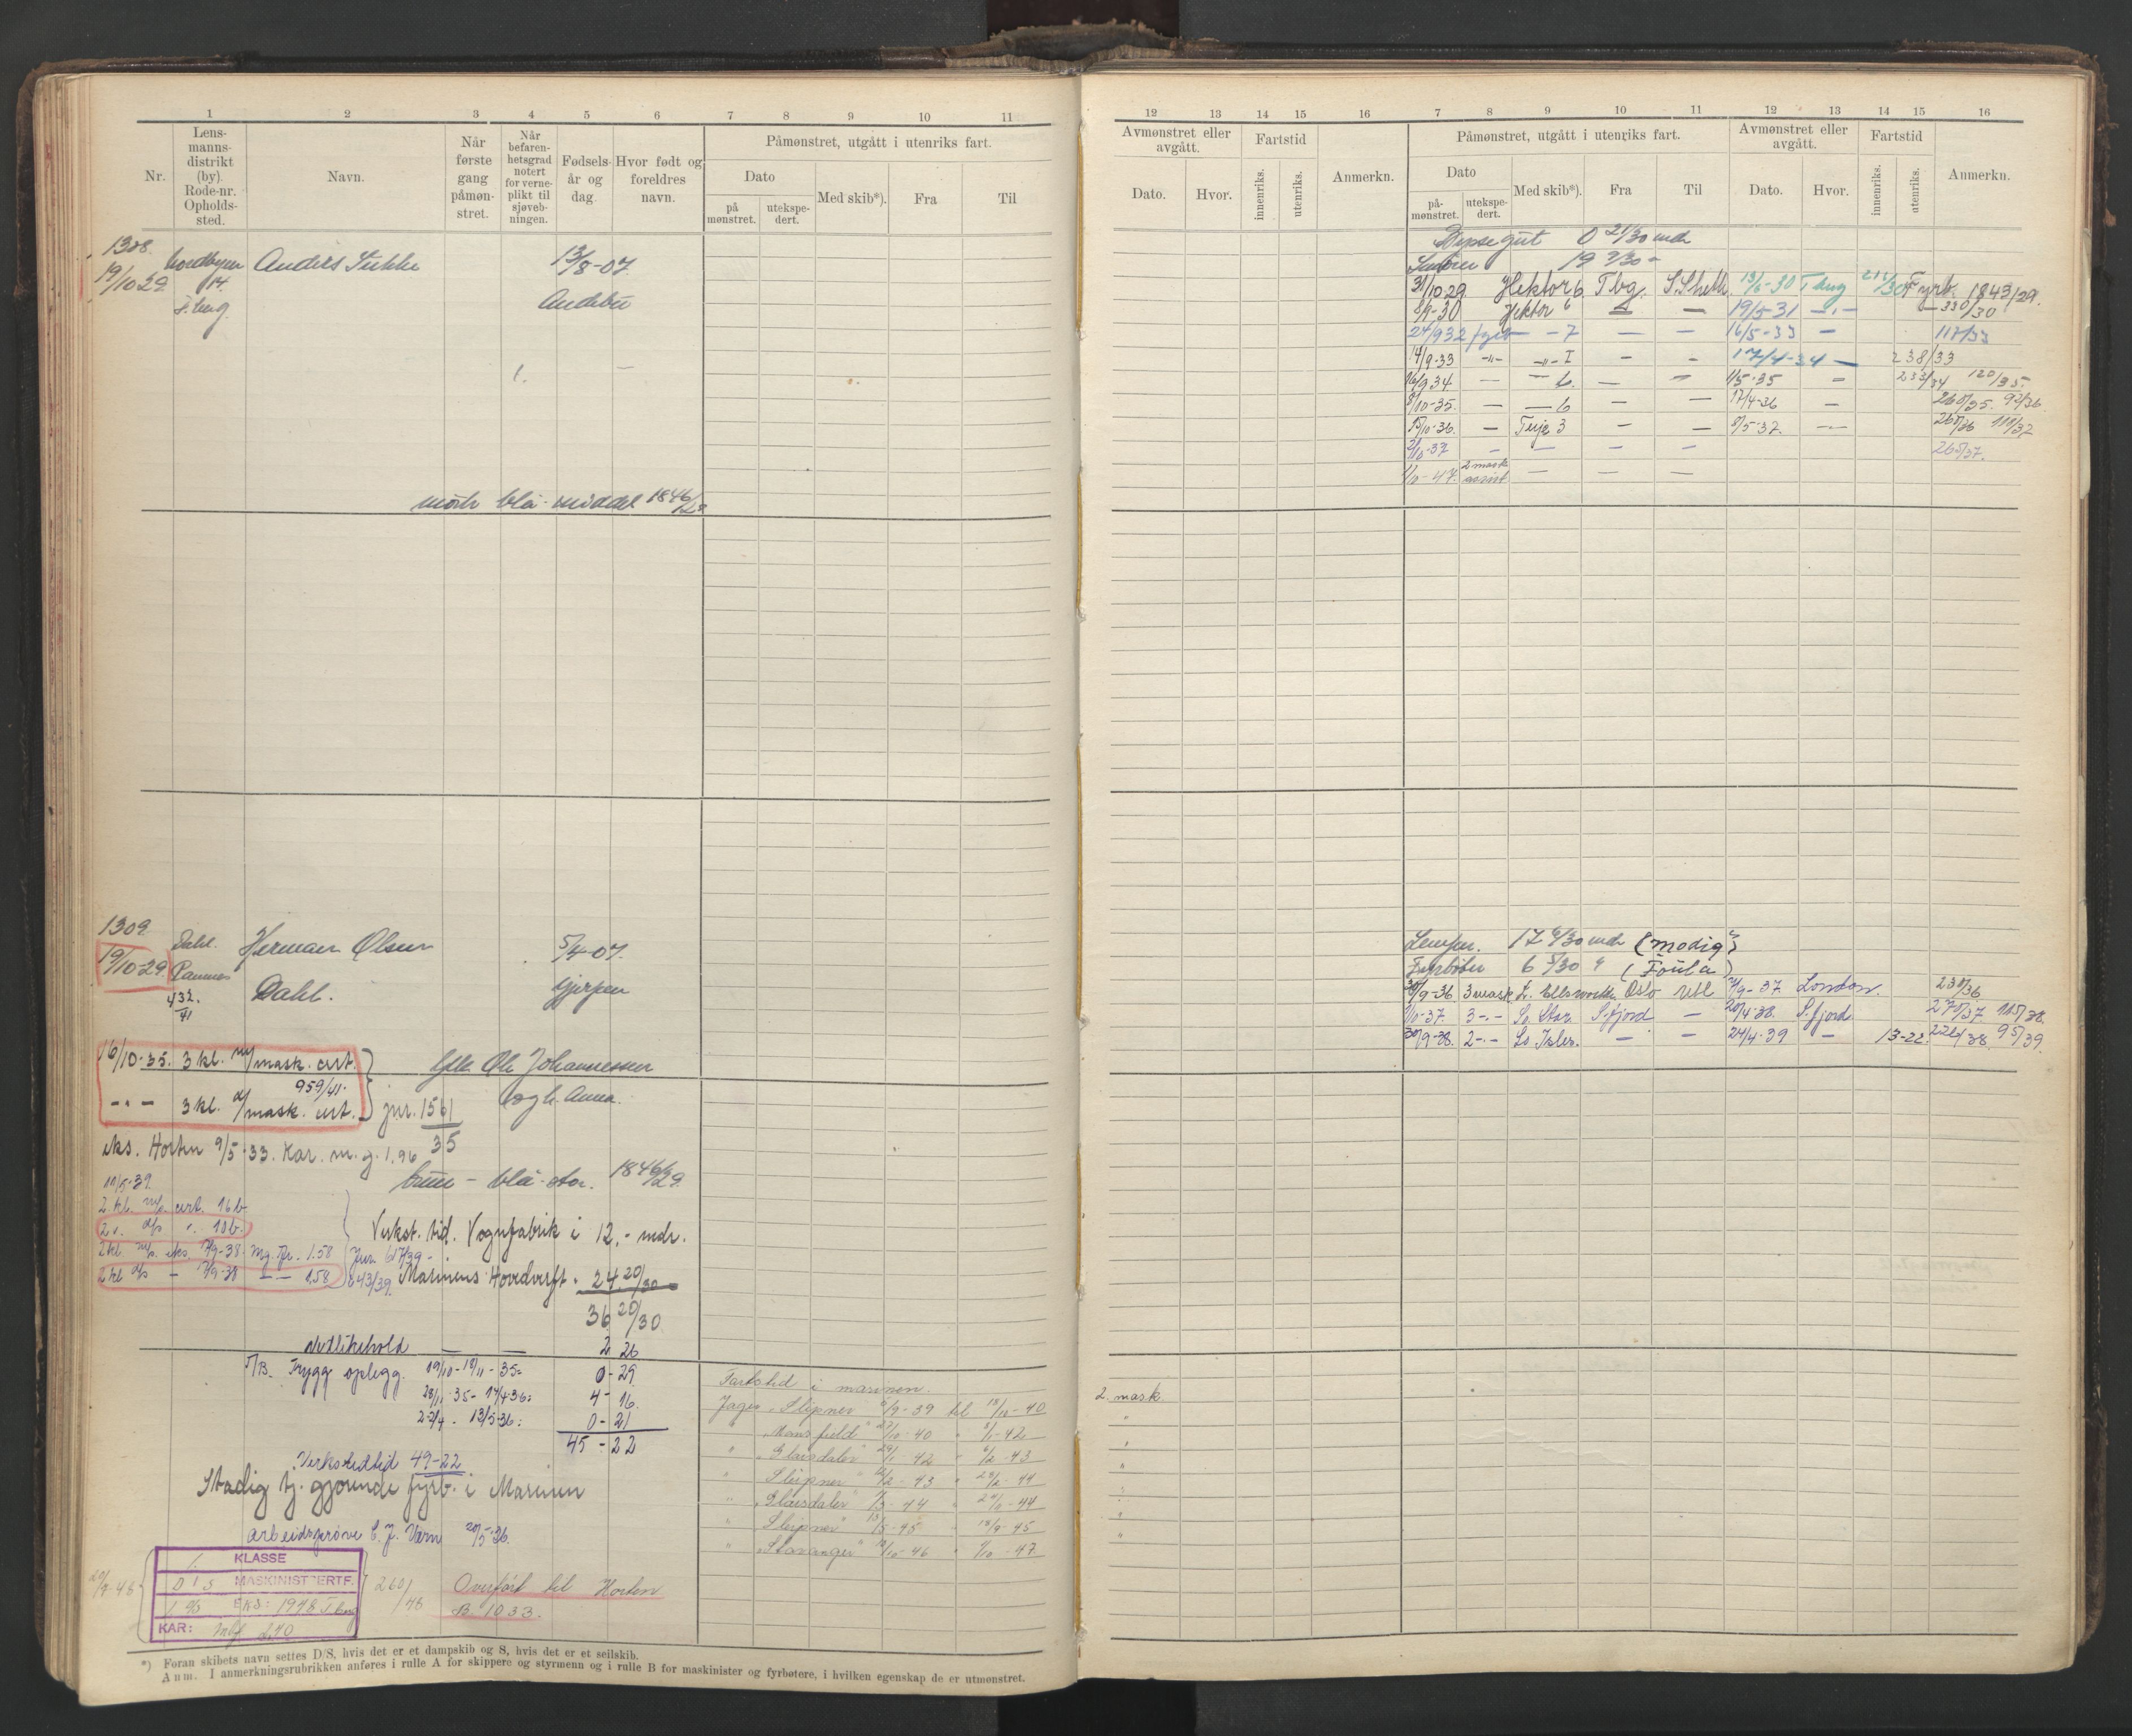 1 2 3 4 5 6 7 8 9 10 11
Nr.
Lens-
manns-
distrikt
(by).
Rode-nr.
Opholds-
sted.
Navn.
Når
første
gang
påmøn-
stret.
Når
befaren-
hetsgrad
notert
for verne-
plikt til
sjøveb-
ningen.
Fødsels-
år og
dag.
Hvor født og
foreldres
navn.
Påmønstret, utgått i utenriks fart.
Dato
på
mønstret.
utekspe-
dert.
Med skib*).
Fra
Til
1308
19/10 29.
Nordbyen
14
T.berg.
Anders
13/8-07
Andebu
mörk blå - middel 1846/29
1309
19/10-29.
Dahl.
Ramnes
432/41
Herman Olsen
Dahl.
5/4-07.
Gjerpen
16/10-35. 3 kl. m/mask. cert.
959/41.
-"- 3 kl. d/mask. cert.
jnr. 1561
35
Ole Johannessen
og h. Anna.
eks. Horten 9/5-33. Kar. m. g. 1.96
brun - blå - stor. 1846/29.
11/5-39.
2 kl. m/s. cert. 16 b.
2 ". d/s ". 10 b.
2 kl. m/s. eks. 7/9-38. Mg. Kr. 1.58
2 kl d/s - 7/9-38 - - 1.58
Jnr. 617/39 -
643/39.
Verkst. tid. Vognfabrik i 12.- mdr.
Marinens Hovedverft. 24 20/30
36 20/30
Vedlikehold 2 26
T/B. Trygg oplegg. 19/10-18/11-35= 0-29
28/11.35- 14/4.36= 4-16.
22/4 - 13/5.36= 0-21
45-22
Verkstedtid 49-22
Stadig tj. gjørende fyrb. i Marinen
Arbeidsprøve C. J. Værn 20/5-36.
20/9-48
1. KLASSE
D/S MASKINISTCERTF.
EKS: 1948 T.berg
KAR:
260/48
Overført til Horten
B 1033.
Fartstid i marinen.
Jager "Sleipner" 4/9-39 til 18/10-40
" "Mansfield" 27/10-40 " 8/1-42
" "Glaisdale" 29/1-42 " 6/2-43
" "Sleipner" 12/2-43 " 28/2-44
" "Glaisdale" 1/3-44 " 24/9-44
" "Sleipner" 13/5-45 " 18/9-45
" "Stavanger" 12/10-46 " 1/10-47
*) Foran skibets navn settes D/S, hvis det er et dampskib og S, hvis det er et seilskib.
Anm. I anmerkningsrubrikken anføres i rulle A for skippere og styrmenn og i rulle B for maskinister og fyrbøtere, i hvilken egenskap de er utmønstret.
12 13 14 15 16 7 8 9 10 11 12 13 14 15 16
Avmønstret eller
avgått.
Dato.
Hvor.
Fartstid
innenriks.
utenriks.
Anmerkn.
Påmønstret, utgått i utenriks fart.
Dato
på-
mønstret.
utekspe-
dert.
Med skib*).
Fra
Til
Avmønstret eller
avgått.
Dato.
Hvor.
Fartstid
innenriks.
utenriks.
Anmerkn.
Dyssegut 0 21/30 mdr
19 2/30 -
31/10 29 Hektor 6 Tbg. S.Shetl. 13/6-30 Tbug Fyrb. 1843/29.
8/9-30 Hektor 6 - - 19/5-31 -"- - 330/30
24/9 32 - 7 - - 16/5-33 - 117/33
14/9-33 -"- -"- I - - 17/4-34 - 238/33
16/9 34 - - 6. - - 1/5-35 - 233/34 120/35.
8/10-35. - - 6 - - 17/4-36 - 260/35. 92/36
15/10-36. - Terje 3 - - 8/5-37. - 265/36 111/37
2/10-37 - - - - 265/37.
1/10-47. 2 mask assist - - -
Lemper. 17 6/30 mdr (Modig)
Fyrbøter 6 5/30 " (Foula)
30/9-36. 3 mask L. Ellsworth Oslo Utl 7/9-37. London. 230/36
1/10-37. 3 -"- So. Star. S.fjord - 20/4-38. S.fjord 275/37 115/38.
30/9-38. 2 -"- So Isles. - - 24/4-39 - 13-22. 226/38. 95/39.
2. mask.
"
"
"
"
"
"